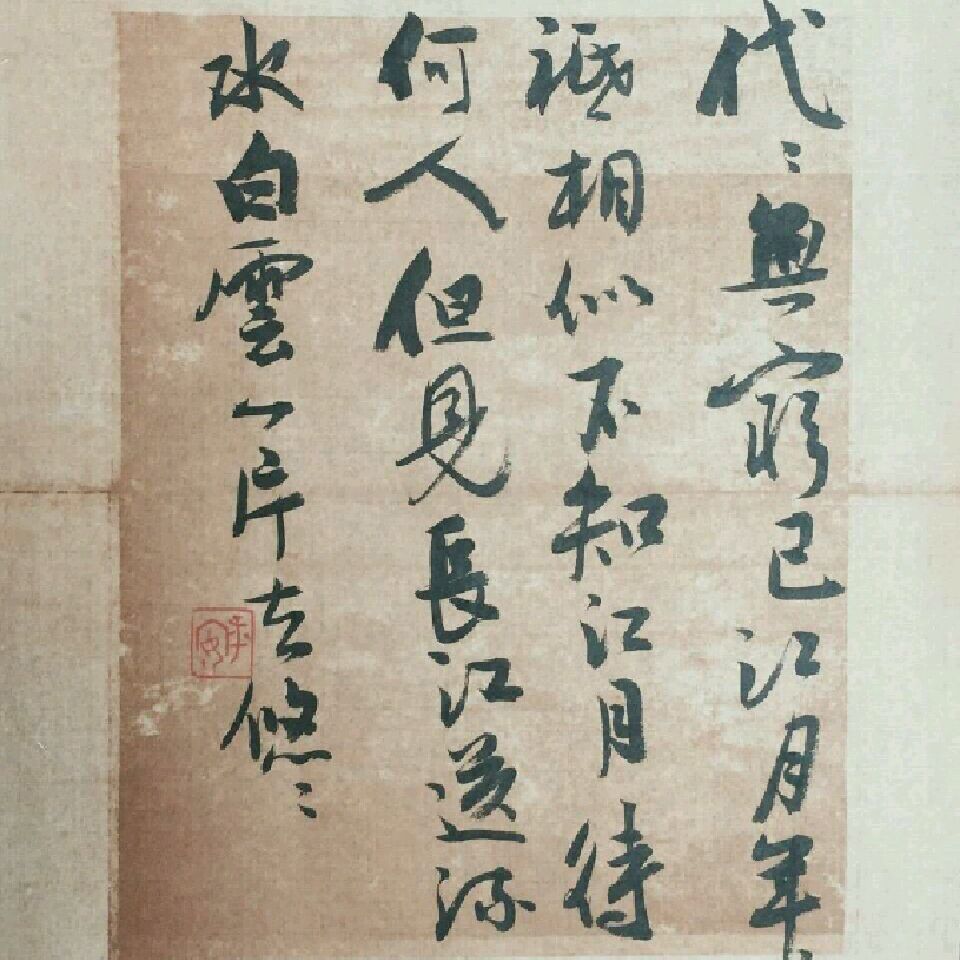 代〻無窮已江月年〻
祗相似不知江月待
何人但見長江送流
水白雲一片去悠〻